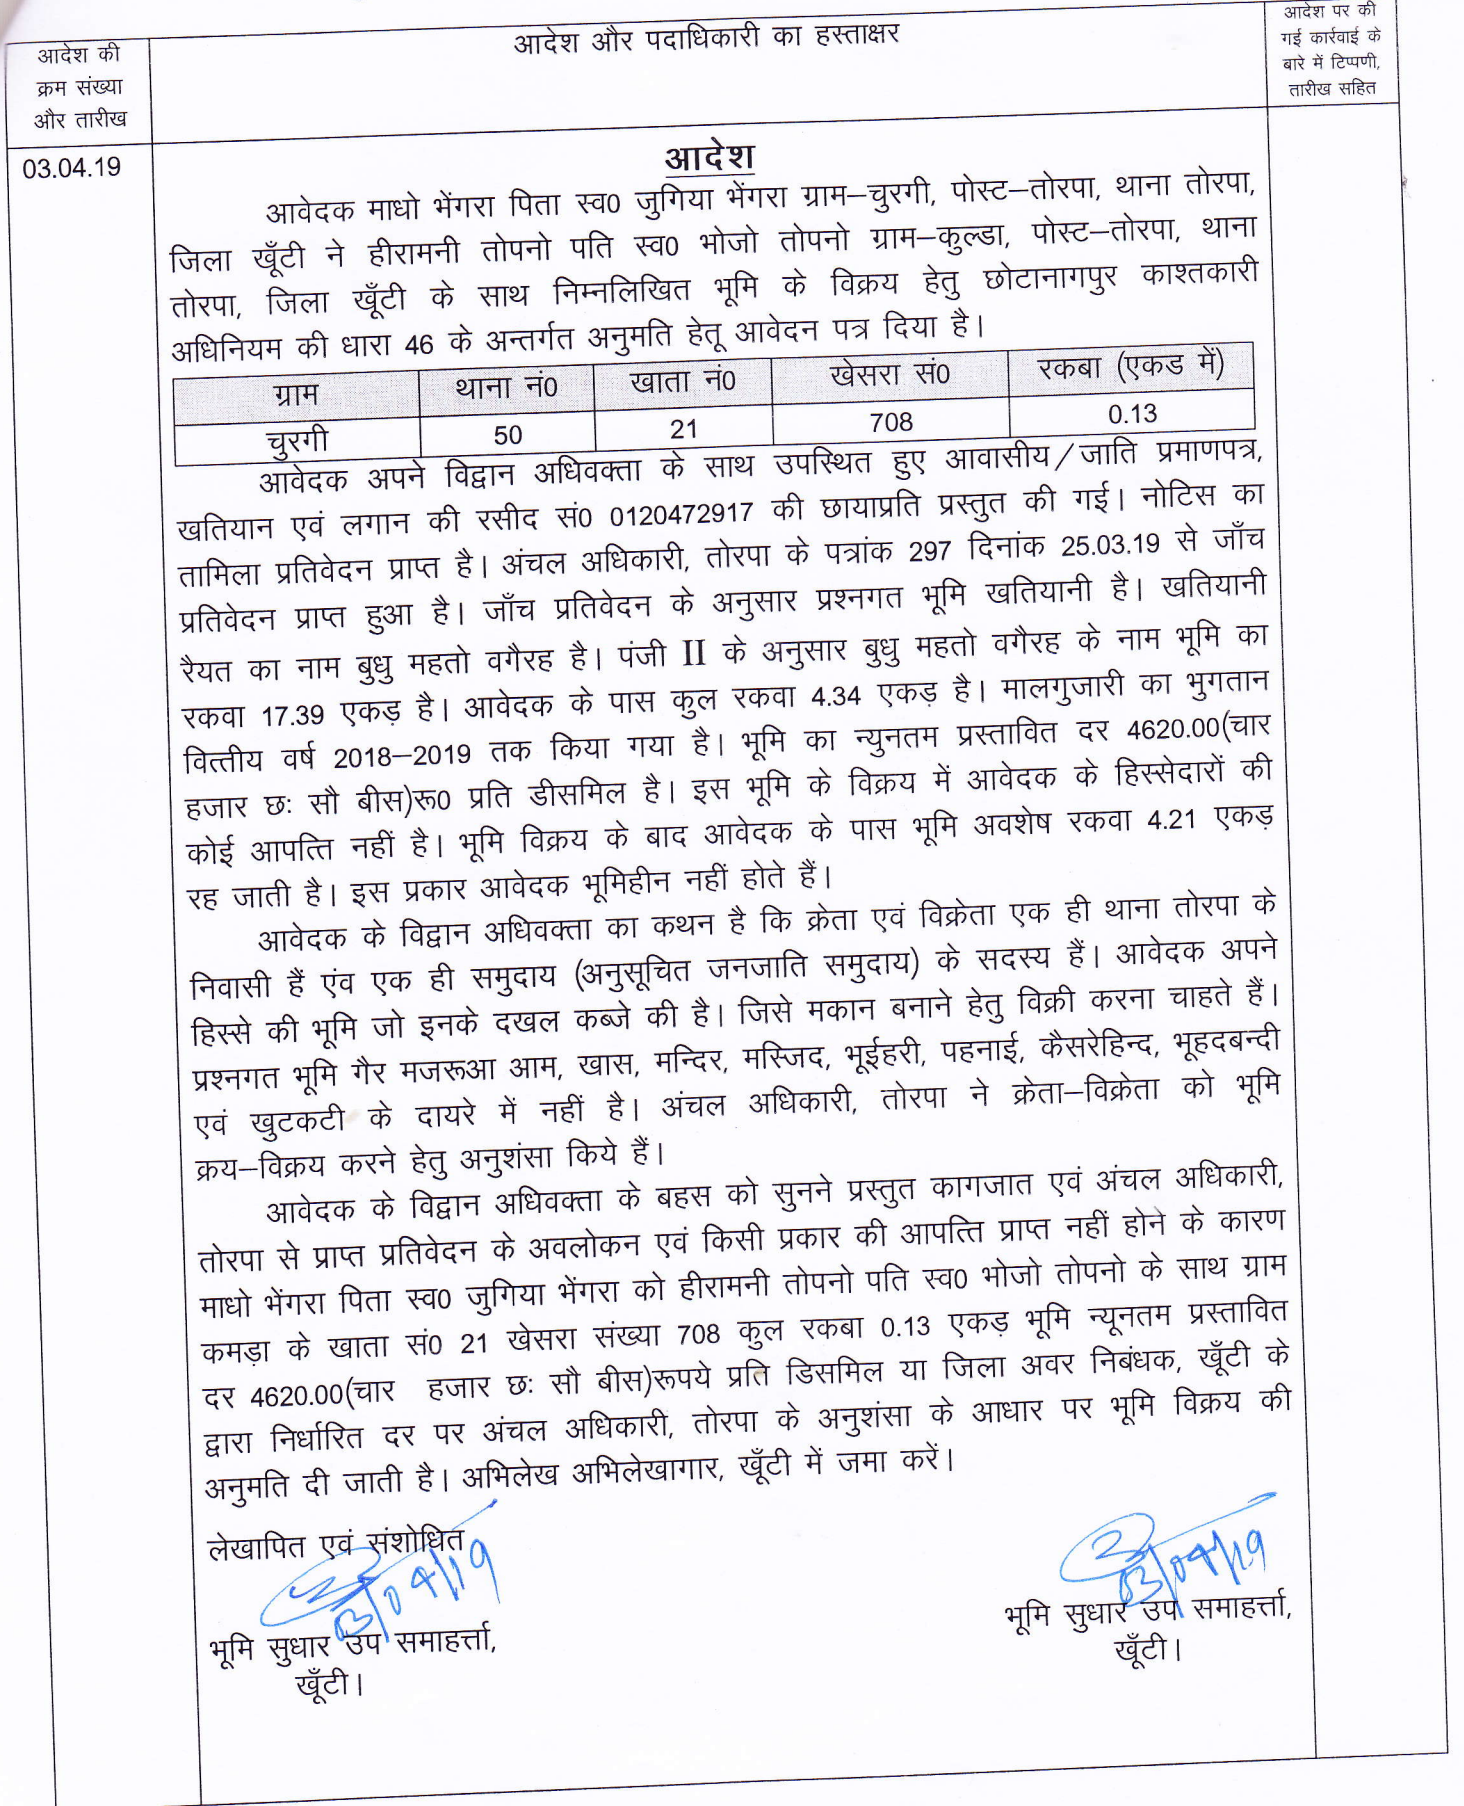 आदेश की
क्रम संख्या
और तारीख
आदेश और पदाधिकारी का हस्ताक्षर
आदेश पर की
गई कार्रवाई के
बारे में टिप्पणी,
तारीख सहित
03.04.19
आदेश
आवेदक माधो भेंगरा पिता स्व0 जुगिया भेंगरा ग्राम–चुरगी, पोस्ट–तोरपा, थाना तोरपा,
जिला खूँटी ने हीरामनी तोपनो पति स्व0 भोजो तोपनो ग्राम–कुल्डा, पोस्ट–तोरपा, थाना
तोरपा, जिला खूँटी के साथ निम्नलिखित भूमि के विक्रय हेतु छोटानागपुर काश्तकारी
अधिनियम की धारा 46 के अन्तर्गत अनुमति हेतू आवेदन पत्र दिया है।
ग्राम थाना नं0 खाता नं0 खेसरा सं0 रकबा (एकड में)
चुरगी 50 21 708 0.13
आवेदक अपने विद्वान अधिवक्ता के साथ उपस्थित हुए आवासीय/जाति प्रमाणपत्र,
खतियान एवं लगान की रसीद सं0 0120472917 की छायाप्रति प्रस्तुत की गई। नोटिस का
तामिला प्रतिवेदन प्राप्त है। अंचल अधिकारी, तोरपा के पत्रांक 297 दिनांक 25.03.19 से जाँच
प्रतिवेदन प्राप्त हुआ है। जाँच प्रतिवेदन के अनुसार प्रश्नगत भूमि खतियानी है। खतियानी
रैयत का नाम बुधु महतो वगैरह है। पंजी II के अनुसार बुधु महतो वगैरह के नाम भूमि का
रकवा 17.39 एकड़ है। आवेदक के पास कुल रकवा 4.34 एकड़ है। मालगुजारी का भुगतान
वित्तीय वर्ष 2018–2019 तक किया गया है। भूमि का न्युनतम प्रस्तावित दर 4620.00(चार
हजार छः सौ बीस)रू0 प्रति डीसमिल है। इस भूमि के विक्रय में आवेदक के हिस्सेदारों की
कोई आपत्ति नहीं है। भूमि विक्रय के बाद आवेदक के पास भूमि अवशेष रकवा 4.21 एकड़
रह जाती है। इस प्रकार आवेदक भूमिहीन नहीं होते हैं।
आवेदक के विद्वान अधिवक्ता का कथन है कि क्रेता एवं विक्रेता एक ही थाना तोरपा के
निवासी हैं एंव एक ही समुदाय (अनुसूचित जनजाति समुदाय) के सदस्य हैं। आवेदक अपने
हिस्से की भूमि जो इनके दखल कब्जे की है। जिसे मकान बनाने हेतु विक्री करना चाहते हैं।
प्रश्नगत भूमि गैर मजरूआ आम, खास, मन्दिर, मस्जिद, भूईहरी, पहनाई, कैसरेहिन्द, भूहदबन्दी
एवं खुटकटी के दायरे में नहीं है। अंचल अधिकारी, तोरपा ने क्रेता–विक्रेता को भूमि
क्रय–विक्रय करने हेतु अनुशंसा किये हैं।
आवेदक के विद्वान अधिवक्ता के बहस को सुनने प्रस्तुत कागजात एवं अंचल अधिकारी,
तोरपा से प्राप्त प्रतिवेदन के अवलोकन एवं किसी प्रकार की आपत्ति प्राप्त नहीं होने के कारण
माधो भेंगरा पिता स्व0 जुगिया भेंगरा को हीरामनी तोपनो पति स्व0 भोजो तोपनो के साथ ग्राम
कमड़ा के खाता सं0 21 खेसरा संख्या 708 कुल रकबा 0.13 एकड़ भूमि न्यूनतम प्रस्तावित
दर 4620.00(चार हजार छः सौ बीस)रूपये प्रति डिसमिल या जिला अवर निबंधक, खूँटी के
द्वारा निर्धारित दर पर अंचल अधिकारी, तोरपा के अनुशंसा के आधार पर भूमि विक्रय की
अनुमति दी जाती है। अभिलेख अभिलेखागार, खूँटी में जमा करें।
लेखापित एवं संशोधित
03/04/19
03/04/19
भूमि सुधार उप समाहर्त्ता,
खूँटी।
भूमि सुधार उप समाहर्त्ता,
खूँटी।